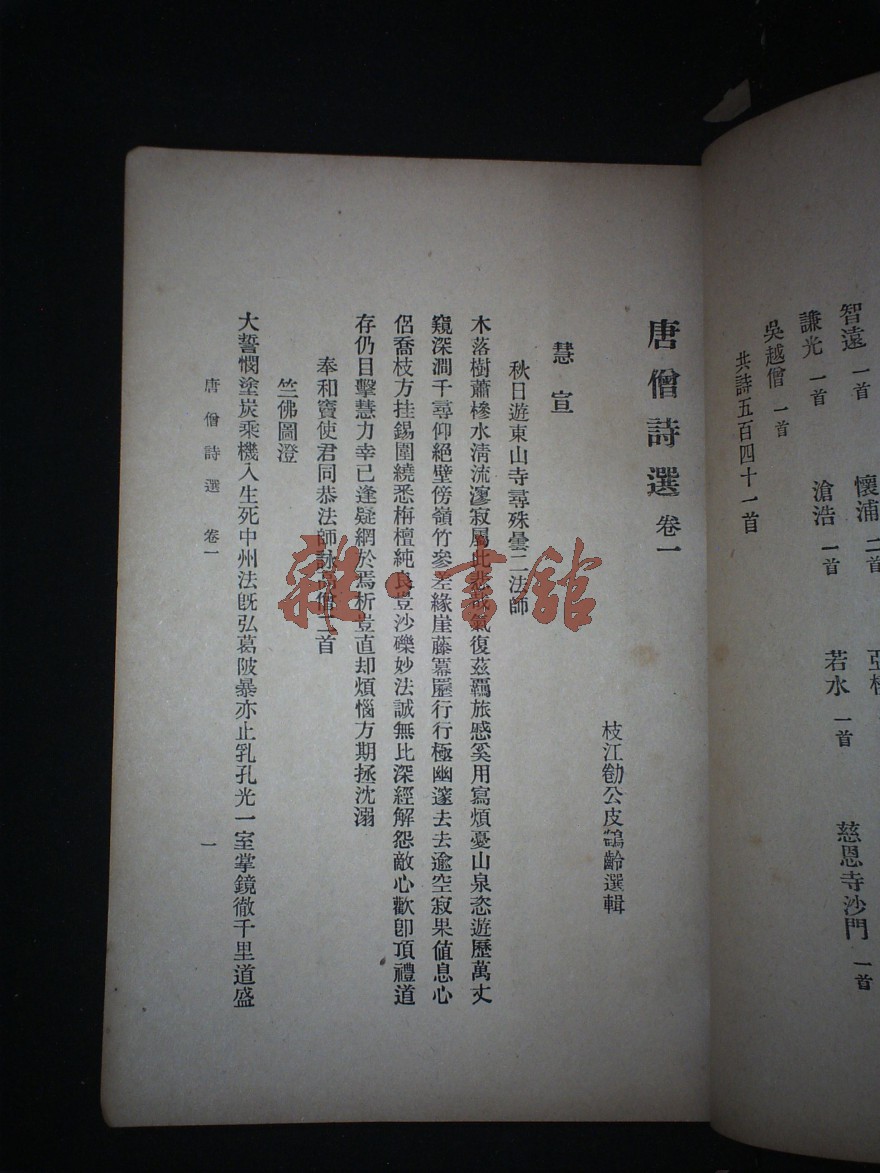 智遠 一首
懷浦 二首
慈恩寺沙門 一首
謙光 一首
滄浩 一首
若水 一首
吳越僧 一首
共詩五百四十一首
唐僧詩選 卷一
枝江勧公皮鶴齡選輯
慧宣
秋日遊東山寺尋殊曇二法師
木落樹蕭槮水清流漻寂屬此悲哉氣復茲羈旅慼奚用寫煩憂山泉恣遊歷萬丈
窺深澗千尋仰絕壁傍嶺竹參差緣崖藤冪䍥行行極幽邃去去逾空寂果値息心
侶喬枝方挂錫圍繞悉栴檀純良豈沙礫妙法誠無比深經解怨敵心歡卽頂禮道
存仍目擊慧力幸已逢疑網於焉析豈直却煩惱方期拯沈溺
奉和竇使君同恭法師詠高僧二首
竺佛圖澄
大誓憫塗炭乘機入生死中州法旣弘葛陂暴亦止乳孔光一室掌鏡徹千里道盛
唐僧詩選 卷一
一
雜·書館